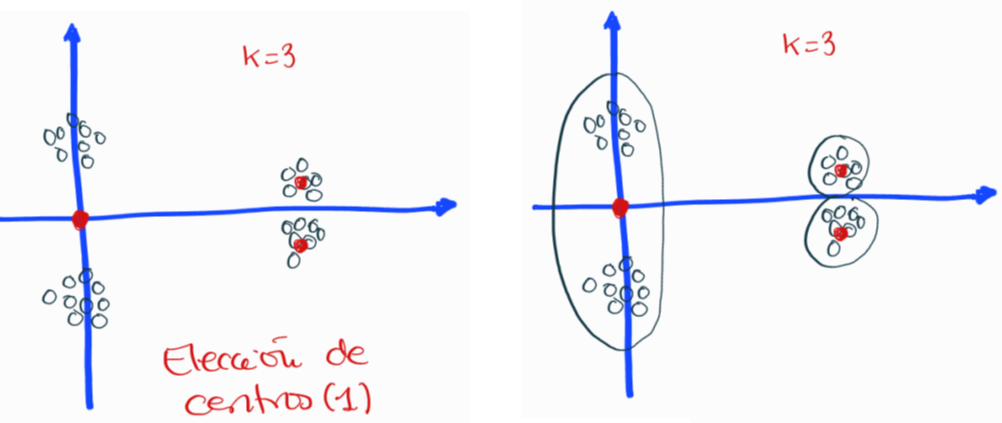 k=3
Elección de
centros (1)
k=3